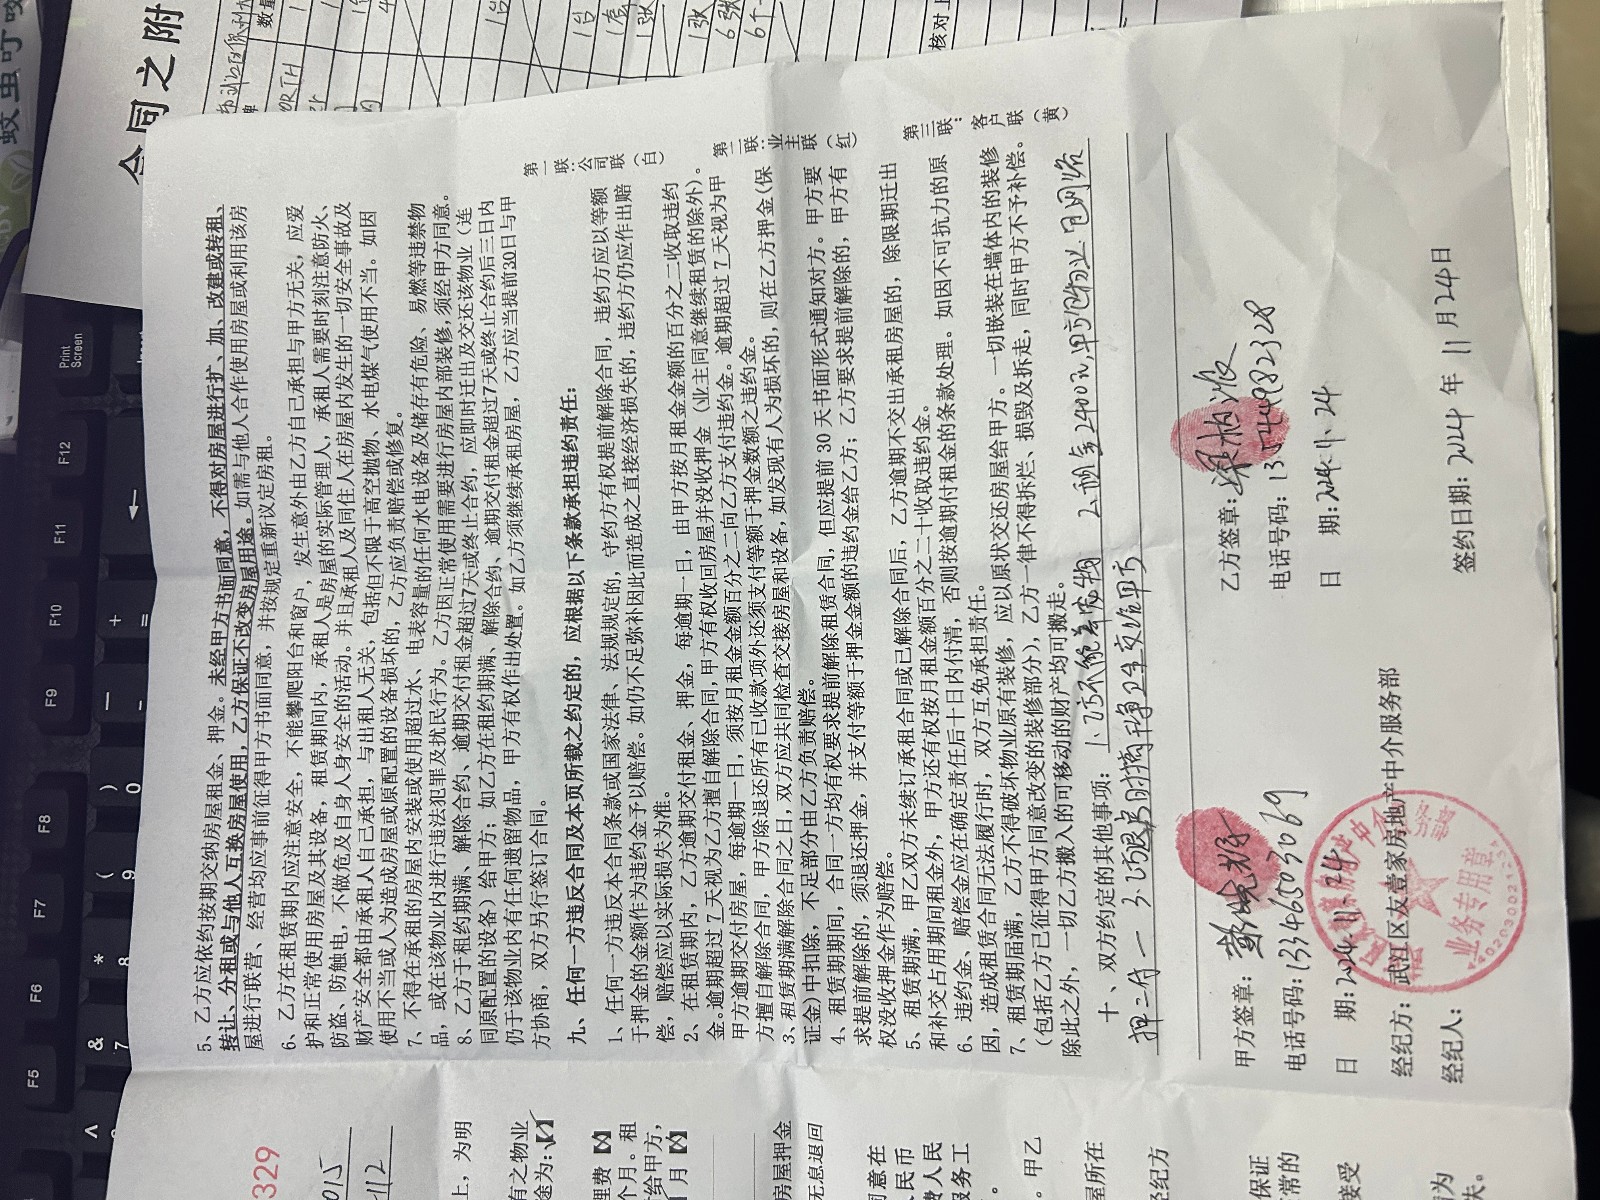 5、乙方应依约按期交纳房屋租金、押金。未经甲方书面同意，不得对房屋进行扩、加、改建或转租、
转让、分租或与他人互换房屋使用，乙方保证不改变房屋用途。如需与他人合作使用房屋或利用该房
屋进行联营、经营均应事前征得甲方书面同意，并按规定重新议定房租。
6、乙方在租赁期内应注意安全，不能攀爬阳台和窗户，发生意外由乙方自己承担与甲方无关，应爱
护和正常使用房屋及其设备，租赁期间内，承租人是房屋的实际管理人，承租人需要时刻注意防火、
防盗、防触电，不做危及自身人身安全的活动。并且承租人及同住人在房屋内发生的一切安全事故及
财产安全都由承租人自己承担，与出租人无关，包括但不限于高空抛物、水电煤气使用不当。如因
使用不当或人为造成房屋或原配置的设备损坏的，乙方应负责赔偿或修复。
7、不得在承租的房屋内安装或使用超过水、电表容量的任何水电设备及储存有危险、易燃等违禁物
品，或在该物业内进行违法犯罪及扰民行为。乙方因正常使用需要进行房屋内部装修，须经甲方同意。
8、乙方于租约期满、解除合约、逾期交付租金超过7天或终止合约，应即时迁出及交还该物业（连
同原配置的设备）给甲方；如乙方在租约期满、解除合约、逾期交付租金超过7天或终止合约后三日内
仍于该物业内有任何遗留物品，甲方有权作出处置。如乙方须继续承租房屋，乙方应当提前30日与甲
方协商，双方另行签订合同。
九、任何一方违反合同及本页所载之约定的，应根据以下条款承担违约责任：
1、任何一方违反本合同条款或国家法律、法规规定的，守约方有权提前解除合同，违约方应以等额
于押金的金额作为违约金予以赔偿。如仍不足弥补因此而造成之直接经济损失的，违约方仍应作出赔
偿，赔偿应以实际损失为准。
2、在租赁期内，乙方逾期交付租金、押金，每逾期一日，由甲方按月租金金额的百分之二收取违约
金。逾期超过 7 天视为乙方擅自解除合同，甲方有权收回房屋并没收押金（业主同意继续租赁的除外）。
甲方逾期交付房屋，每逾期一日，须按月租金金额百分之二向乙方支付违约金。逾期超过 7 天视为甲
方擅自解除合同，甲方除退还所有已收款项外还须支付等额于押金数额之违约金。
3、租赁期满解除合同之日，双方应共同检查交接房屋和设备，如发现有人为损坏的，则在乙方押金（保
证金）中扣除，不足部分由乙方负责赔偿。
4、租赁期期间，合同一方均有权要求提前解除租赁合同，但应提前 30 天书面形式通知对方。甲方要
求提前解除的，须退还押金，并支付等额于押金金额的违约金给乙方；乙方要求提前解除的，甲方有
权没收押金作为赔偿。
5、租赁期满，甲乙双方未续订承租合同或已解除合同后，乙方逾期不交出承租房屋的，除限期迁出
和补交占用期间租金外，甲方还有权按月租金额百分之二十收取违约金。
6、违约金、赔偿金应在确定责任后十日内付清，否则按逾期付租金的条款处理。如因不可抗力的原
因，造成租赁合同无法履行时，双方互免承担责任。
7、租赁期届满，乙方不得破坏物业原有装修，应以原状交还房屋给甲方。一切嵌装在墙体内的装修
（包括乙方已征得甲方同意改变的装修部分），乙方一律不得拆拦、损毁及拆走，同时甲方不予补偿。
除此之外，一切乙方搬入的可移动的财产均可搬走。
十、双方约定的其他事项：1.乙方不能养宠物 2.租金2400元,甲方包物业,包网络
押二付一 3.乙方退房时需搞卫生交给甲方
甲方签章：
电话号码：13346503069
日 期：2024.11.24
经纪方：武江区友壹家房地产中介服务部
经纪人：
业务专用章
乙方签章：
电话号码：13544982328
日 期：2024.11.24
签约日期：2024 年 11 月 24 日
第一联：公司联（白）
第二联：业主联（红）
第三联：客户联（黄）
合同之附
数量
核对上
329
上，为明
有之物业
途为：
理费
个月。租
给甲方，
月
房屋押金
无息退回
同意在
民币
费人民
服务工
。甲乙
屋所在
经纪方
保证
常的
接受
为
失。
Print
Screen
F12
F11
F10
F9
F8
F7
F6
F5
+
=
)
0
(
9
*
8
&
7